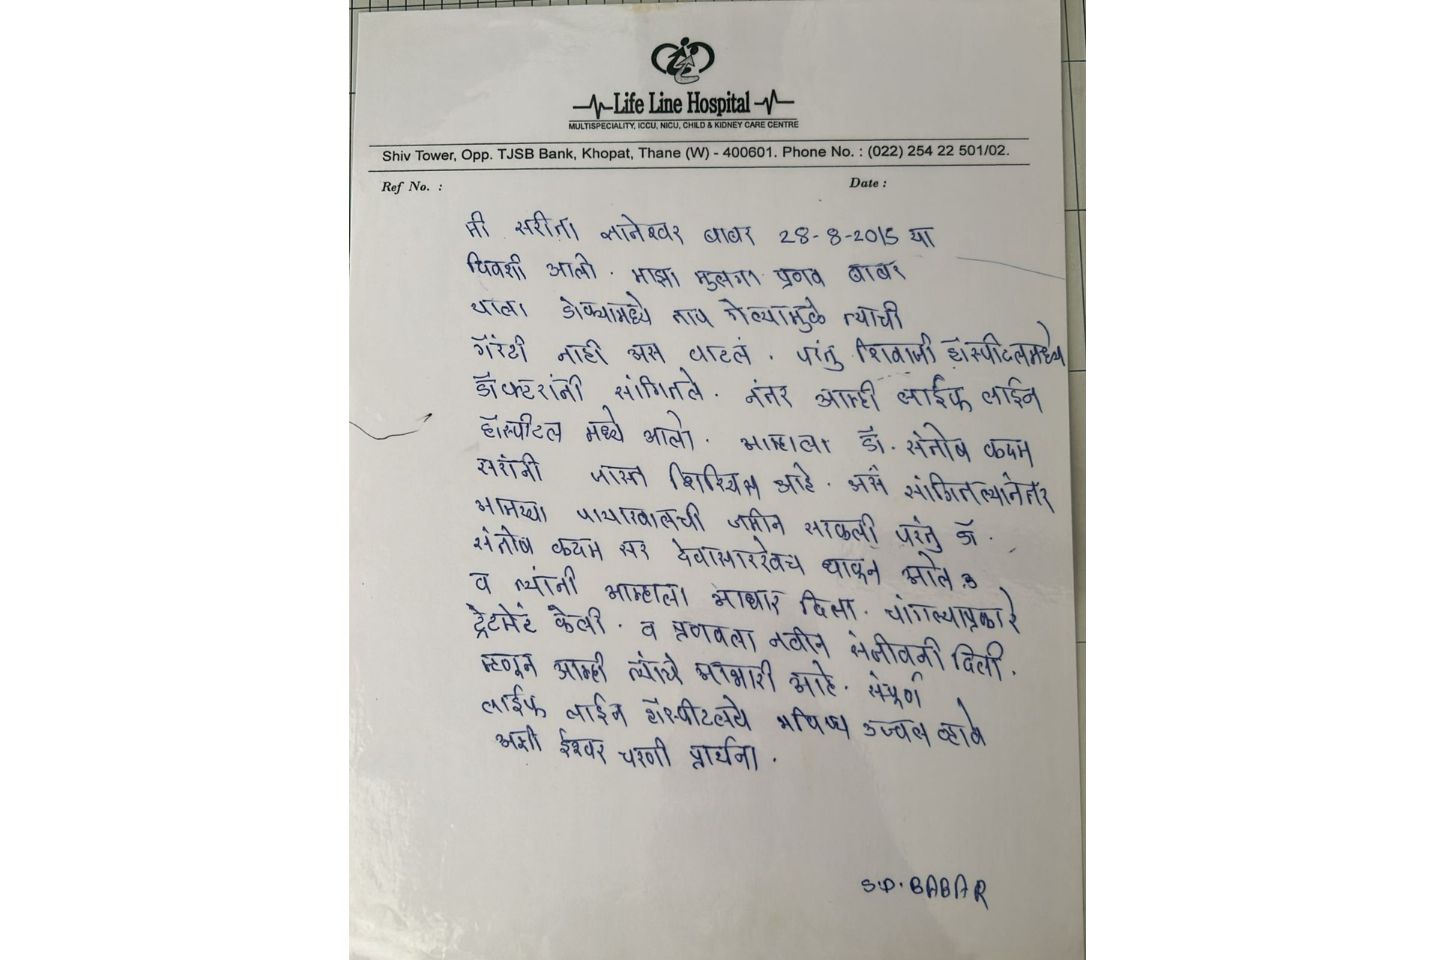 Life Line Hospital
MULTISPECIALITY, ICCU, NICU, CHILD & KIDNEY CARE CENTRE
Shiv Tower, Opp. TJSB Bank, Khopat, Thane (W) - 400601. Phone No. : (022) 254 22 501/02.
Ref No. : Date :
मी सरीता ज्ञानेश्वर बाबर 28-8-2015 या
दिवशी आलो. माझा मुलगा प्रणव बाबर
याला डोक्यामध्ये ताप गेल्यामुळे त्याची
गॅरंटी नाही असं वाटलं. परंतु शिवाजी हॉस्पीटलमध्ये
डॉक्टरांनी सांगितले. नंतर आम्ही लाईफ लाईन
हॉस्पीटल मध्ये आलो. आम्हाला डॉ. संतोष कदम
सरांनी जास्त सिरियस आहे. असं सांगितल्यानंतर
आमच्या पायाखालची जमीन सरकली परंतु डॉ.
संतोष कदम सर देवासारखेच धावून आले
व त्यांनी आम्हाला आधार दिला. चांगल्याप्रकारे
ट्रेटमेंट केली. व प्रणवला नवीन संजीवनी दिली.
म्हणून आम्ही त्यांचे आभारी आहे. संपूर्ण
लाईफ लाईन हॉस्पीटलचे भविष्य उज्वल व्हावे
अशी ईश्वर चरणी प्रार्थना.
S.D. BABAR